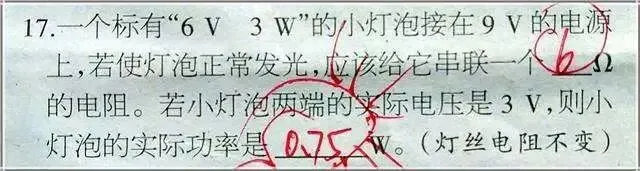 17.一个标有“6 V 3 W”的小灯泡接在 9 V 的电源
上,若使灯泡正常发光,应该给它串联一个 6 Ω
的电阻。若小灯泡两端的实际电压是 3 V,则小
灯泡的实际功率是 0.75 W。(灯丝电阻不变)